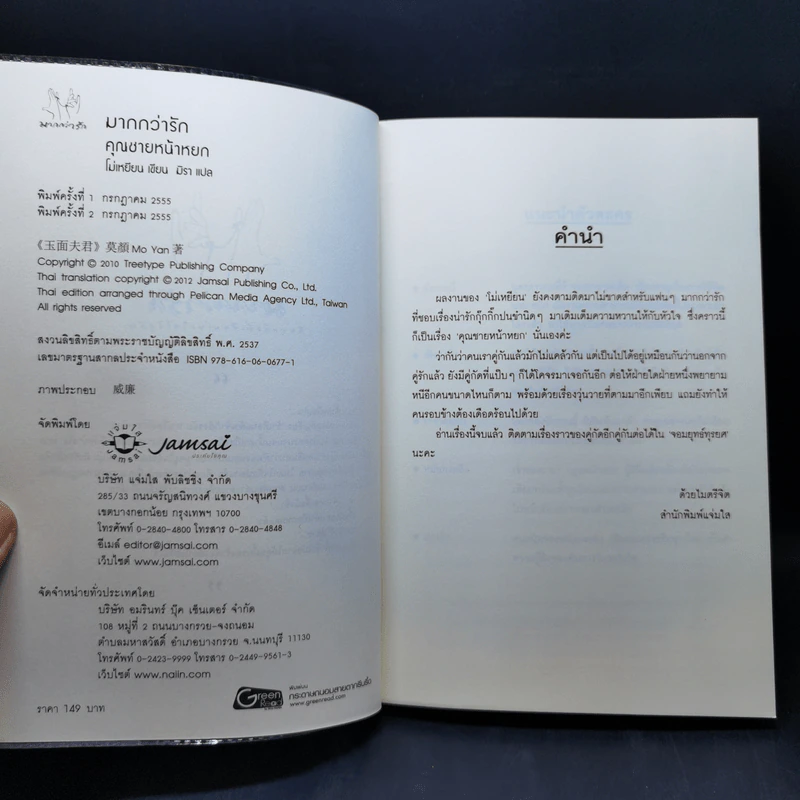 มากกว่ารัก
มากกว่ารัก
คุณชายหน้าหยก
โม่เหยียน เขียน มิรา แปล
พิมพ์ครั้งที่ 1 กรกฎาคม 2555
พิมพ์ครั้งที่ 2 กรกฎาคม 2555
《玉面夫君》莫顏 Mo Yan 著
Copyright © 2010 Treetype Publishing Company
Thai translation copyright © 2012 Jamsai Publishing Co., Ltd.
Thai edition arranged through Pelican Media Agency Ltd., Taiwan
All rights reserved
สงวนลิขสิทธิ์ตามพระราชบัญญัติลิขสิทธิ์ พ.ศ. 2537
เลขมาตรฐานสากลประจำหนังสือ ISBN 978-616-06-0677-1
ภาพประกอบ 威廉
จัดพิมพ์โดย
แจ่มใส
Jamsai
jamsai
บริษัท แจ่มใส พับลิชชิ่ง จำกัด
285/33 ถนนจรัญสนิทวงศ์ แขวงบางขุนศรี
เขตบางกอกน้อย กรุงเทพฯ 10700
โทรศัพท์ 0-2840-4800 โทรสาร 0-2840-4848
อีเมล์ editor@jamsai.com
เว็บไซต์ www.jamsai.com
จัดจำหน่ายทั่วประเทศโดย
บริษัท อมรินทร์ บุ๊ค เซ็นเตอร์ จำกัด
108 หมู่ที่ 2 ถนนบางกรวย-จงถนอม
ตำบลมหาสวัสดิ์ อำเภอบางกรวย จ.นนทบุรี 11130
โทรศัพท์ 0-2423-9999 โทรสาร 0-2449-9561-3
เว็บไซต์ www.naiin.com
Green Read
พิมพ์บน
กระดาษถนอมสายตากรีนรี้ด
www.greenread.com
ราคา 149 บาท
คำนำ
ผลงานของ 'โม่เหยียน' ยังคงตามติดมาไม่ขาดสำหรับแฟนๆ มากกว่ารัก
ที่ชอบเรื่องน่ารักกุ๊กกิ๊กปนขำนิดๆ มาเติมเต็มความหวานให้กับหัวใจ ซึ่งคราวนี้
ก็เป็นเรื่อง 'คุณชายหน้าหยก' นั่นเองค่ะ
ว่ากันว่าคนเราคู่กันแล้วมักไม่แคล้วกัน แต่เป็นไปได้อยู่เหมือนกันว่านอกจาก
คู่รักแล้ว ยังมีคู่กัดที่แป๊บๆ ก็ได้โคจรมาเจอกันอีก ต่อให้ฝ่ายใดฝ่ายหนึ่งพยายาม
หนีอีกคนขนาดไหนก็ตาม พร้อมด้วยเรื่องวุ่นวายที่ตามมาอีกเพียบ แถมยังทำให้
คนรอบข้างต้องเดือดร้อนไปด้วย
อ่านเรื่องนี้จบแล้ว ติดตามเรื่องราวของคู่กัดอีกคู่กันต่อได้ใน 'จอมยุทธ์ทุรยศ'
นะคะ
ด้วยไมตรีจิต
สำนักพิมพ์แจ่มใส